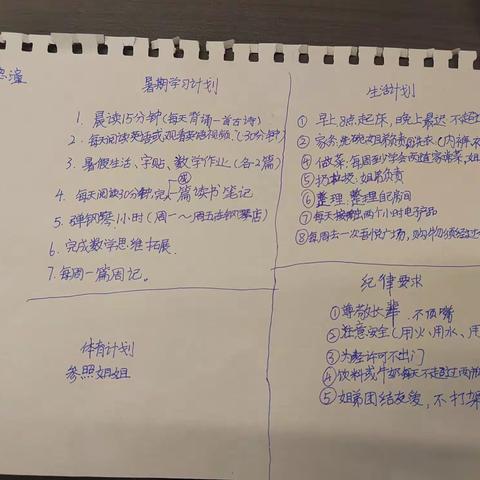 潼
暑期学习计划
1. 晨读15分钟(每天背诵一首古诗)
2. 每天阅读英语或观看英语视频.(30分钟)
3. 暑假生活、字帖、数学作业.(各2篇)
4. 每天阅读30分钟,完成一篇读书笔记
5. 弹钢琴1小时(周一～周五在钢琴店)
6. 完成数学思维拓展.
7. 每周一篇周记。
体育计划
参照姐姐
生活计划
① 早上8点起床,晚上最迟不超过
② 家务:先碗姐弟负责,洗衣(内裤、
③ 做菜:每周到学会两道家常菜,姐
④
⑤ 扔垃圾:姐弟负责
⑥ 整理:整理自己房间
⑦ 每天接触两个小时电子产品
⑧ 每周去一次吾悦广场,购物须经过
纪律要求
① 尊敬长辈.不顶嘴
② 注意安全(用火、用水、用
③ 为经许可不出门
④ 饮料或牛奶每天不超过两瓶
⑤ 姐弟团结友爱,不打架